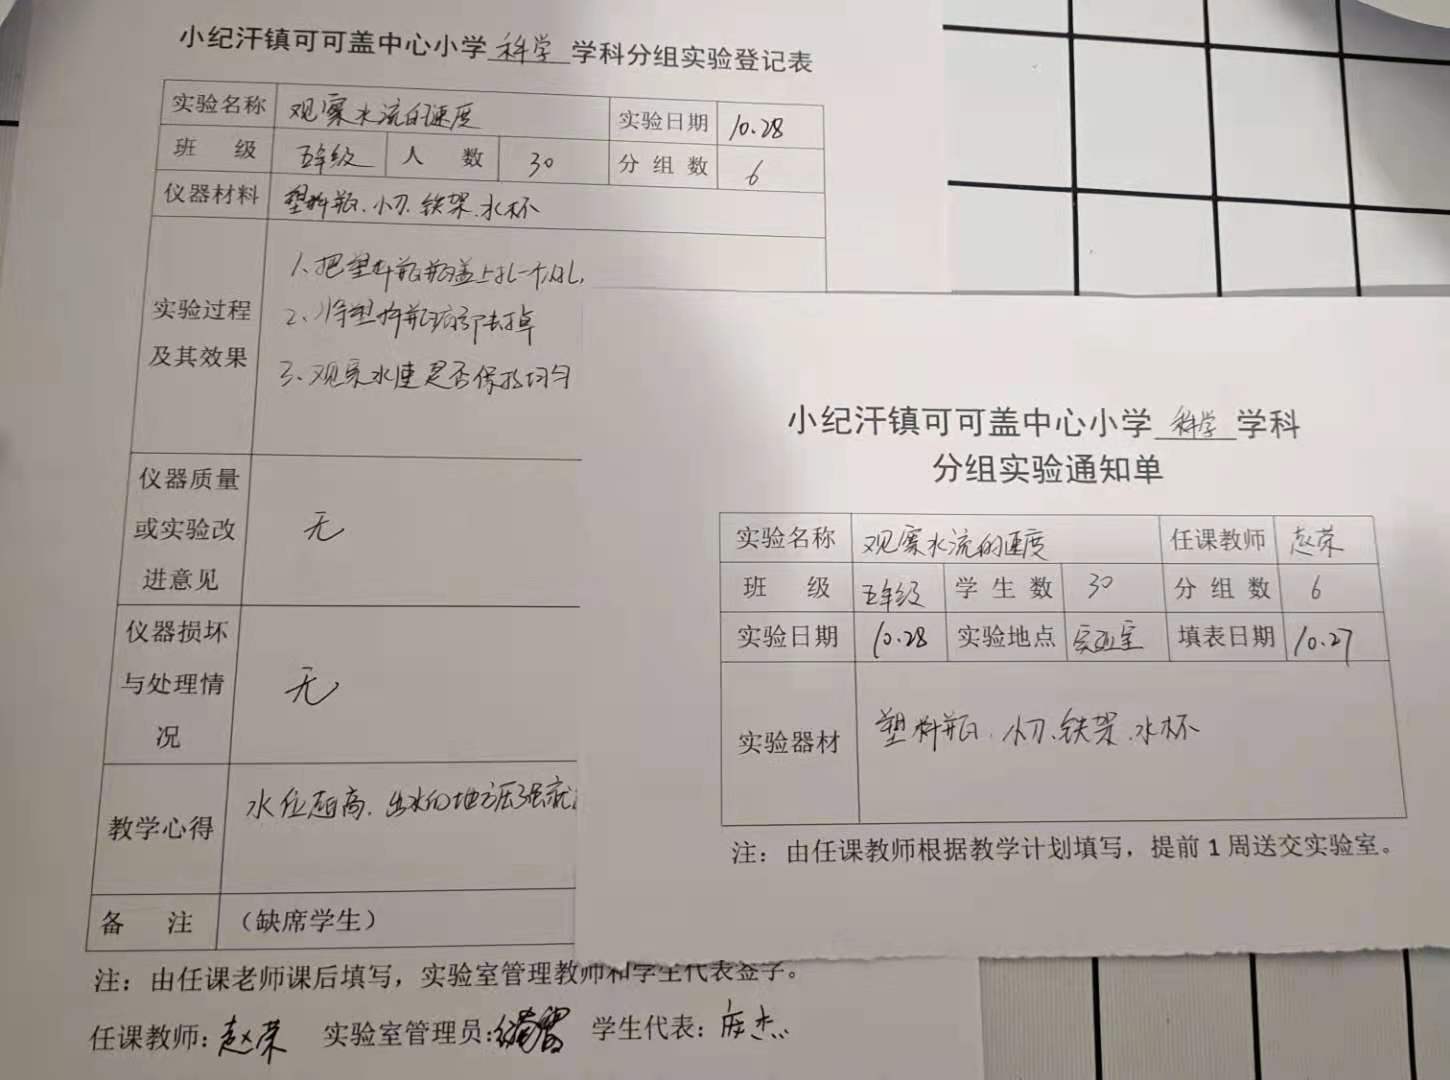 小纪汗镇可可盖中心小学 科学 学科分组实验登记表
实验名称 观察水流的速度 实验日期 10.28
班 级 五年级 人 数 30 分组数 6
仪器材料 塑料瓶、小刀、铁架、水杯
实验过程及其效果
1、把塑料瓶瓶盖上扎一个小孔,
2、将塑料瓶底部去掉
3、观察水速是否保持均匀
仪器质量
或实验改
进意见
无
仪器损坏
与处理情
况
无
教学心得 水位越高、出水的地方压强就
备 注 （缺席学生）
注：由任课老师课后填写，实验室管理教师和学生代表签字。
任课教师：赵荣 实验室管理员： 学生代表：
小纪汗镇可可盖中心小学 科学 学科
分组实验通知单
实验名称 观察水流的速度 任课教师 赵荣
班 级 五年级 学生数 30 分组数 6
实验日期 10.28 实验地点 实验室 填表日期 10.27
实验器材 塑料瓶、小刀、铁架、水杯
注：由任课教师根据教学计划填写，提前1周送交实验室。